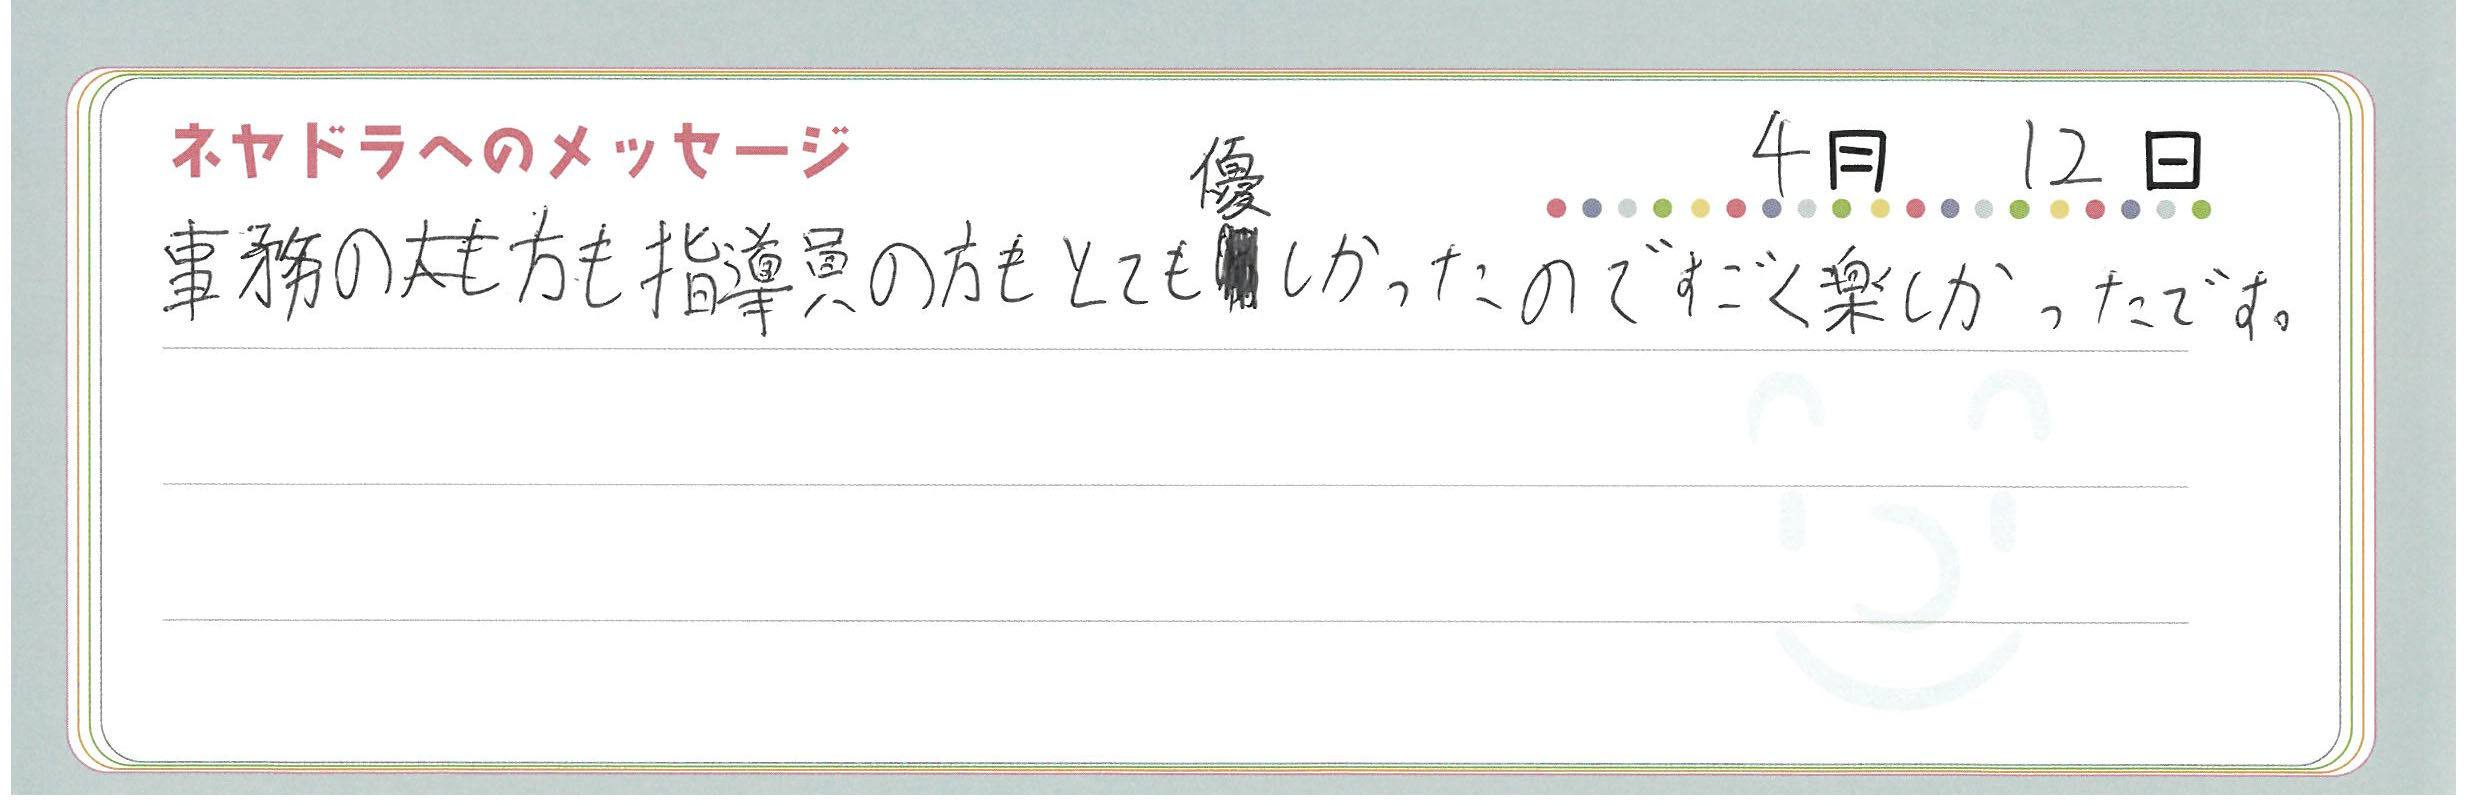 ネヤドラへのメッセージ
4月 12日
事務の方も指導員の方もとても優しかったのですごく楽しかったです。